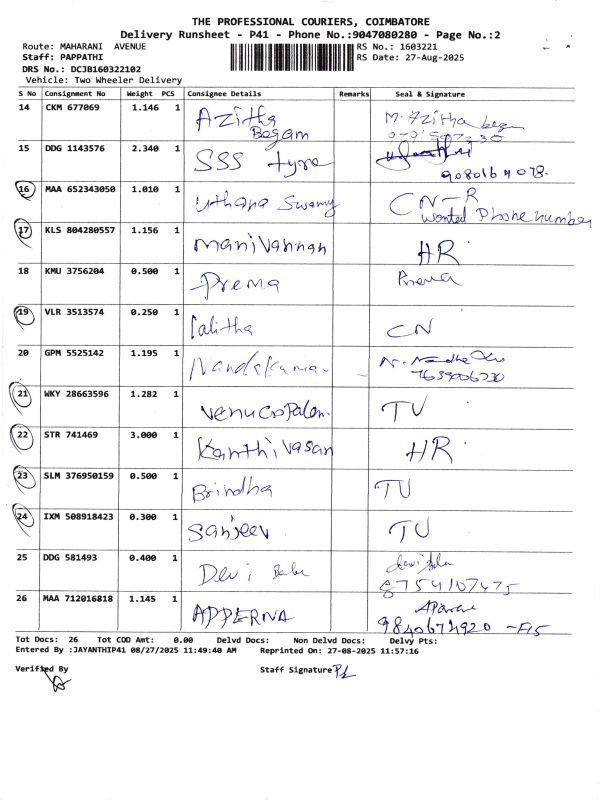 THE PROFESSIONAL COURIERS, COIMBATORE
Delivery Runsheet - P41 - Phone No.:9047080280 - Page No.:2
Route: MAHARANI AVENUE RS No.: 1603221
Staff: PAPPATHI RS Date: 27-Aug-2025
DRS No.: DCJB160322102
Vehicle: Two Wheeler Delivery
S No Consignment No Weight PCS Consignee Details Remarks Seal & Signature
14 CKM 677069 1.146 1 Azitha Begam M. Azitha begam
15 DDG 1143576 2.340 1 SSS tyre
16 MAA 652343050 1.010 1 Uthana Swamy CN-R wanted Phone number
17 KLS 804280557 1.156 1 Manivannan HR
18 KMU 3756204 0.500 1 Prema Prema
19 VLR 3513574 0.250 1 Lalitha CN
20 GPM 5525142 1.195 1 Nandakumar
21 WKY 28663596 1.282 1 Venugopalan TU
22 STR 741469 3.000 1 Kanthivasan HR
23 SLM 376950159 0.500 1 Brindha TU
24 IXM 508918423 0.300 1 Sanjeev TU
25 DDG 581493 0.400 1 Devi Bala 8754107475
26 MAA 712016818 1.145 1 APPERNA
Tot Docs: 26 Tot COD Amt: 0.00 Delvd Docs: Non Delvd Docs: Delvy Pts:
Entered By :JAYANTHIP41 08/27/2025 11:49:40 AM Reprinted On: 27-08-2025 11:57:16
Verified By Staff Signature